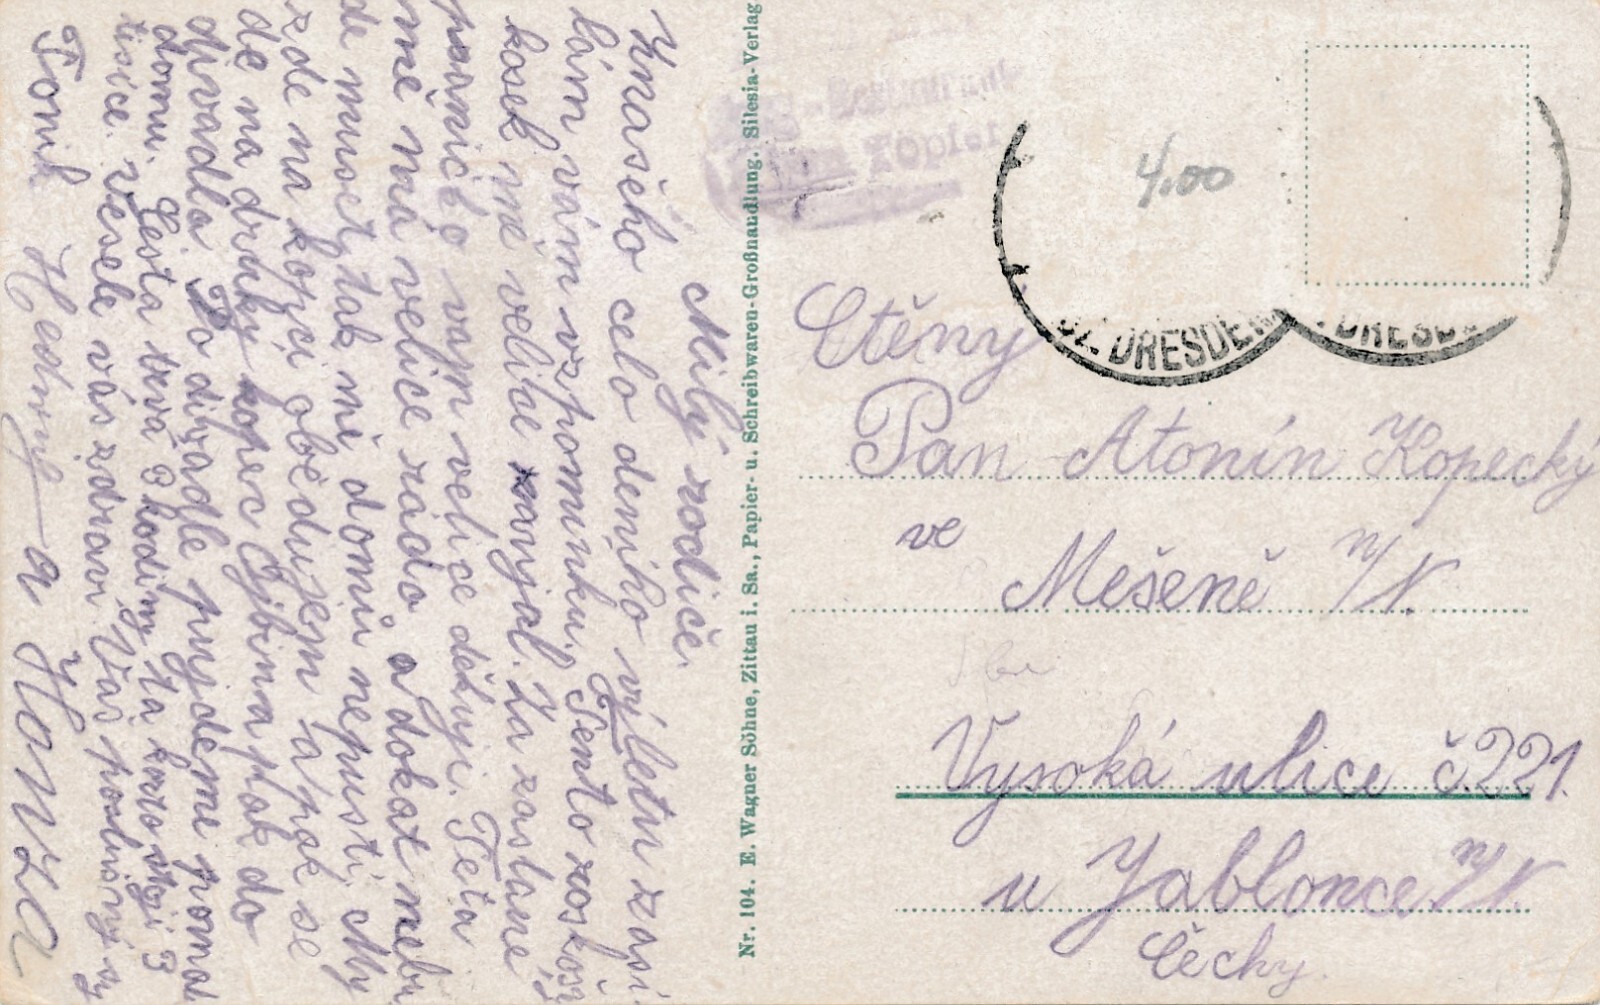 Milý rodiče.
Z našeho celo denního výletu zasí
lám vám vzpomínku. Tento roskošý
kosek mě velice zaujal. Za zaslané
psaníčko vam velice děkuji. Teta
mě má velice ráda a dokat nebu
de muset, tak mě domů nepustí. My
zde na kopci obědujem a pak se
de na druhý kopec Ojbin a pak do
divadla. Po divadle pujdeme pomal
domu. Cesta trvá 3 hodiny ta kozo stojí 3
tisíce. Vesele vás zdraví Vaš poslušný sy
Tonik Hedvy a Honza
Nr. 104. E. Wagner Söhne, Zittau i. Sa., Papier- u. Schreibwaren-Großhandlung. Silesia-Verlag
Baude
Töpfer
4,00
DRESDEN
DRESD
Ctěny
Pan Atonín Kopecký
ve
Mešeně n/N.
Vysoká ulice č.221.
u Jablonce n/N.
Čechy.